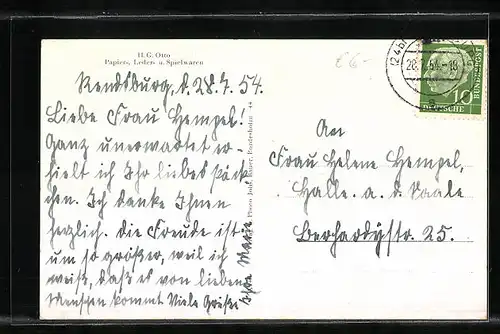 H. G. Otto
Papier-, Leder- u. Spielwaren
Rendsburg, d. 28.7.54.
Liebe Frau Hempel!
Ganz unerwartet er-
hielt ich Ihr liebes Päck-
chen. Ich danke Ihnen
herzlich. die Freude ist
um so größer, weil ich
weiß, daß es von lieben
Menschen kommt Viele Grüße
Ihre Marie
Photo
E6-
28.7.54.-18
DEUTSCHE
BUNDESPOST
10
An
Frau Helene Hempel,
Halle. a. d. Saale
Berhardystr. 25.